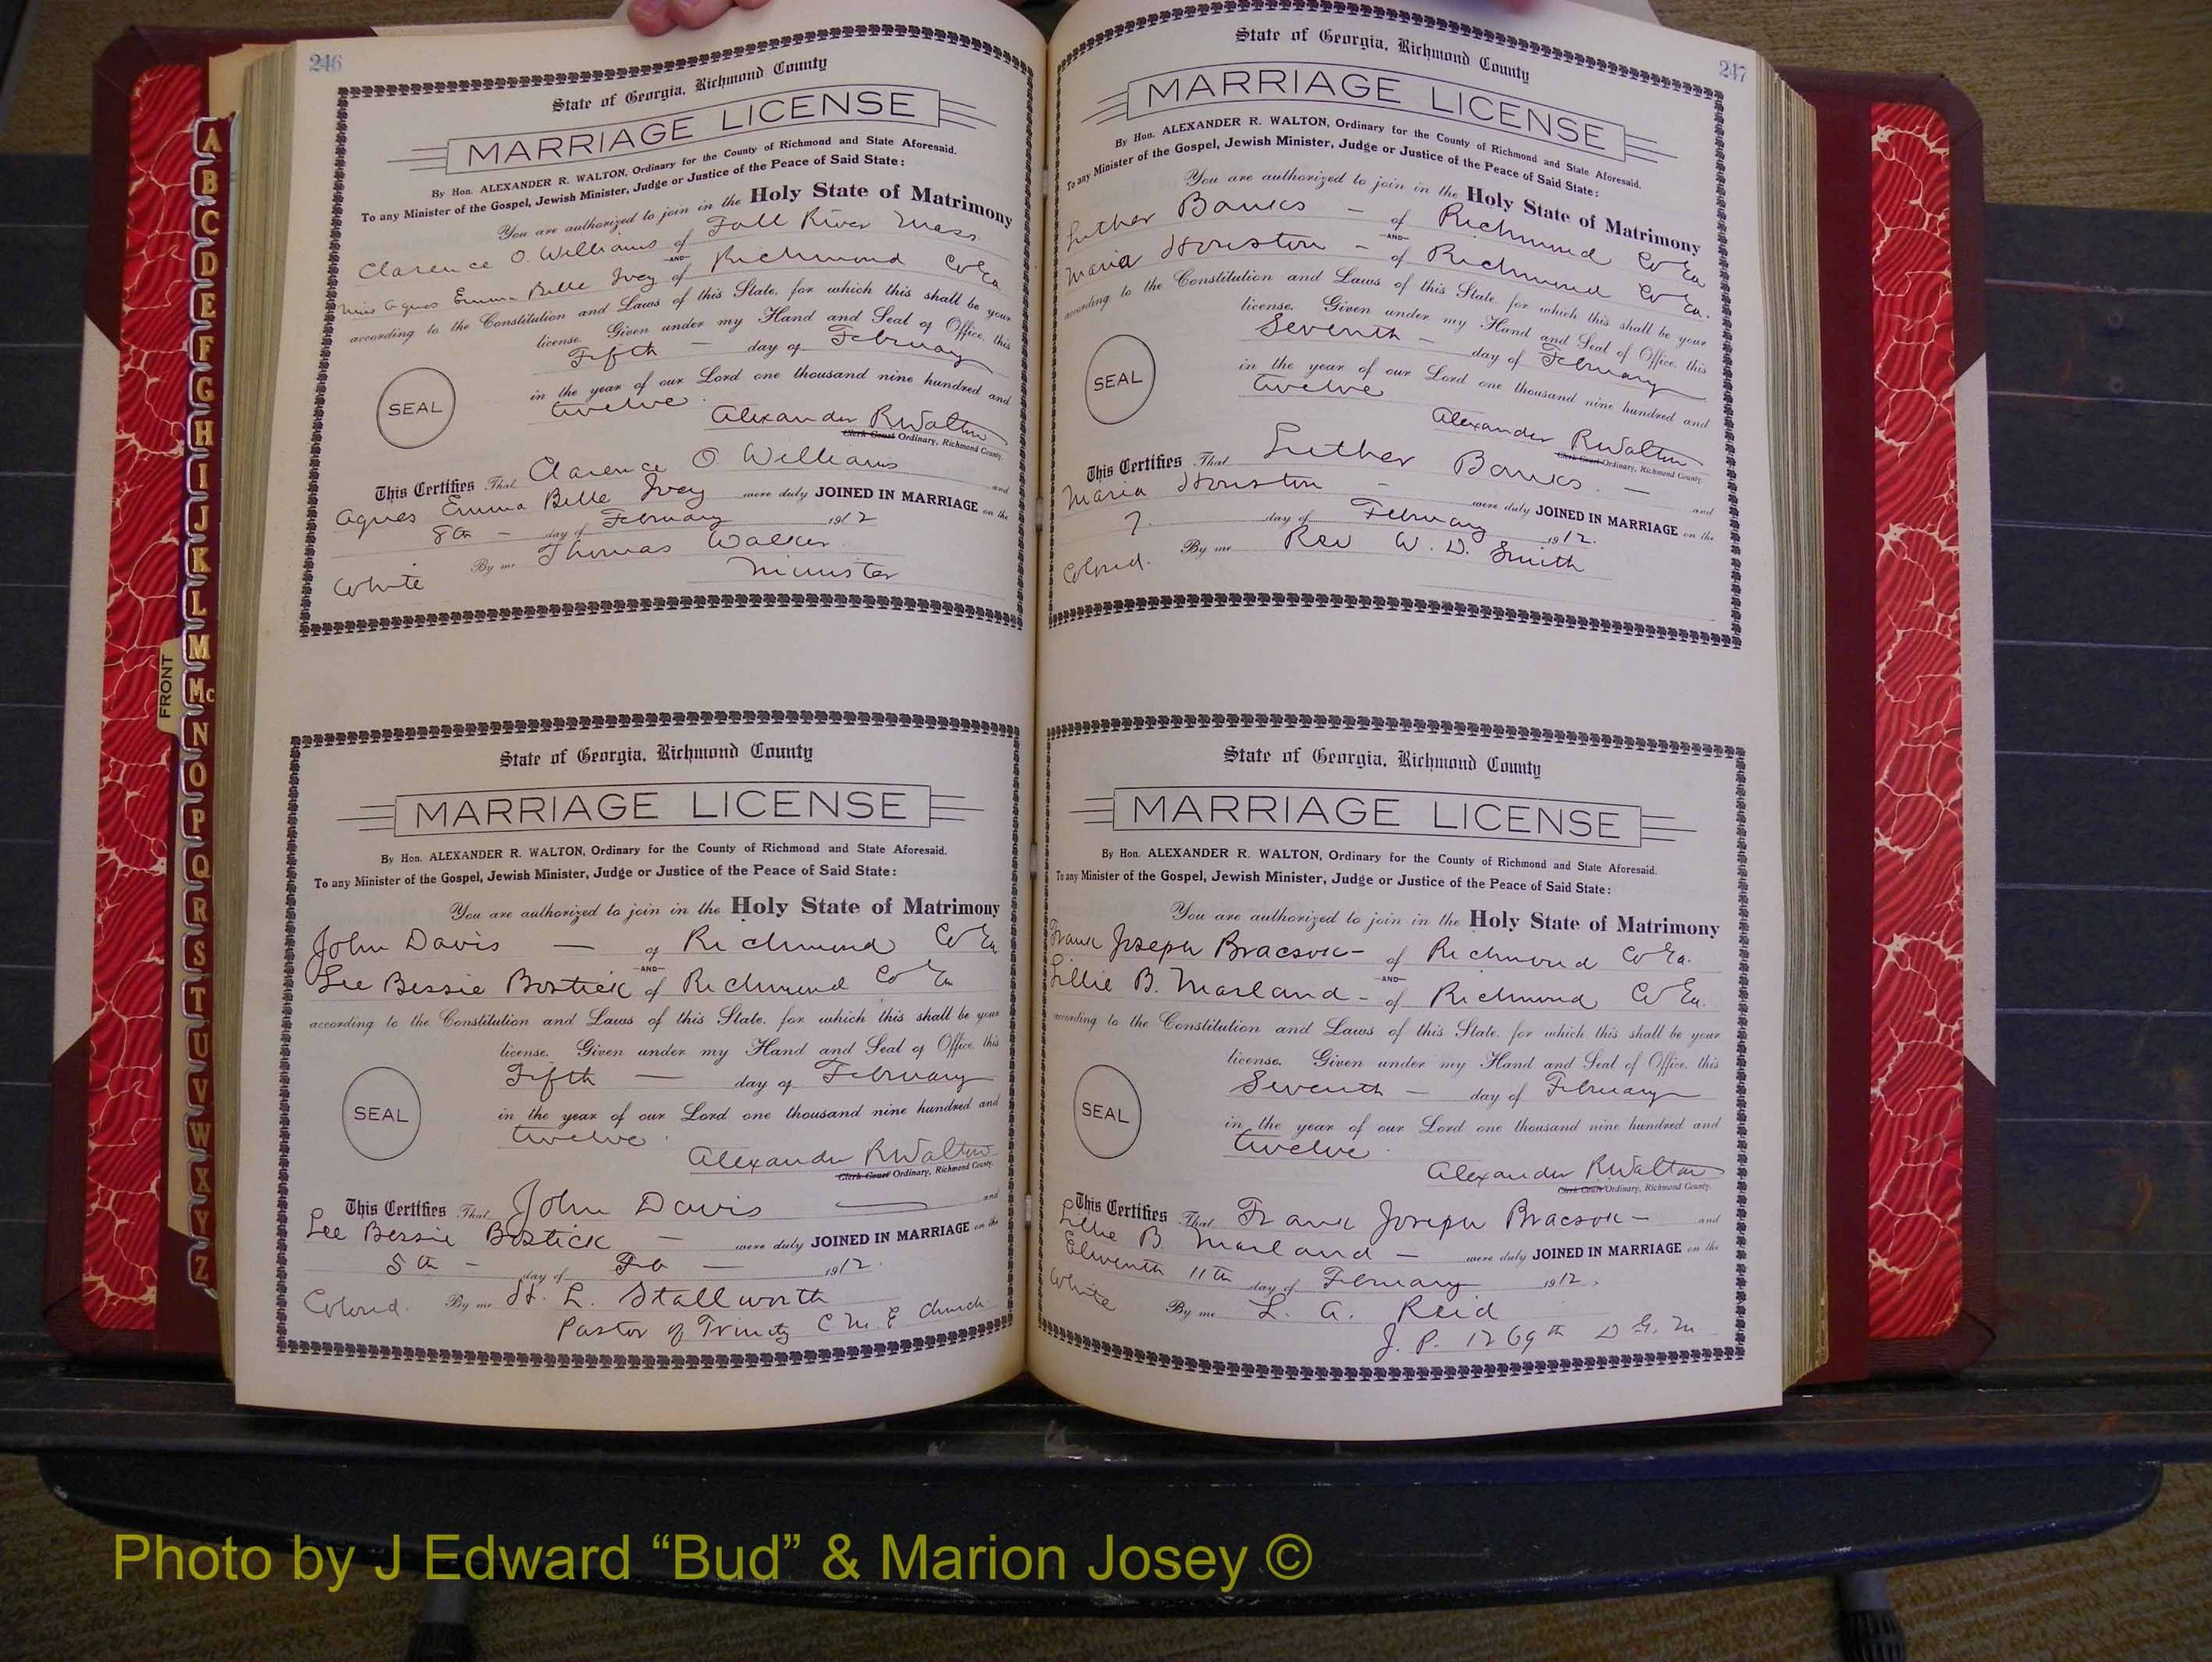 246
State of Georgia, Richmond County
MARRIAGE LICENSE
By Hon. ALEXANDER R. WALTON, Ordinary for the County of Richmond and State Aforesaid.
To any Minister of the Gospel, Jewish Minister, Judge or Justice of the Peace of Said State:
You are authorized to join in the Holy State of Matrimony
Clarence O. Williams of Fall River Mass.
AND
Miss Agnes Emma Belle Ivey of Richmond Co Ga
according to the Constitution and Laws of this State, for which this shall be your
license. Given under my Hand and Seal of Office, this
Fifth — day of February
in the year of our Lord one thousand nine hundred and
twelve.
SEAL
Alexander R Walton
Clerk Court Ordinary, Richmond County.
This Certifies That Clarence O Williams and
Agnes Emma Belle Ivey were duly JOINED IN MARRIAGE on the
8th — day of February 1912
By me Thomas Walker
White Minister
State of Georgia, Richmond County
MARRIAGE LICENSE
By Hon. ALEXANDER R. WALTON, Ordinary for the County of Richmond and State Aforesaid.
To any Minister of the Gospel, Jewish Minister, Judge or Justice of the Peace of Said State:
You are authorized to join in the Holy State of Matrimony
John Davis — of Richmond Co Ga
AND
Lee Bessie Bostick of Richmond Co Ga
according to the Constitution and Laws of this State, for which this shall be your
license. Given under my Hand and Seal of Office, this
Fifth — day of February
in the year of our Lord one thousand nine hundred and
twelve.
SEAL
Alexander R Walton
Clerk Court Ordinary, Richmond County.
This Certifies That John Davis and
Lee Bessie Bostick — were duly JOINED IN MARRIAGE on the
8th — day of Feb — 1912.
Colored. By me H. L. Stallworth
Pastor of Trinity C M. E Church
247
State of Georgia, Richmond County
MARRIAGE LICENSE
By Hon. ALEXANDER R. WALTON, Ordinary for the County of Richmond and State Aforesaid.
To any Minister of the Gospel, Jewish Minister, Judge or Justice of the Peace of Said State:
You are authorized to join in the Holy State of Matrimony
Luther Banks — of Richmond Co Ga
AND
Maria Houston — of Richmond Co Ga.
according to the Constitution and Laws of this State, for which this shall be your
license. Given under my Hand and Seal of Office, this
Seventh — day of February
in the year of our Lord one thousand nine hundred and
twelve
SEAL
Alexander R Walton
Clerk Court Ordinary, Richmond County.
This Certifies That Luther Banks. — and
Maria Houston — were duly JOINED IN MARRIAGE on the
7. day of February 1912.
Colored. By me Rev W. D. Smith
State of Georgia, Richmond County
MARRIAGE LICENSE
By Hon. ALEXANDER R. WALTON, Ordinary for the County of Richmond and State Aforesaid.
To any Minister of the Gospel, Jewish Minister, Judge or Justice of the Peace of Said State:
You are authorized to join in the Holy State of Matrimony
Frank Joseph — of Richmond Co Ga.
AND
Lillie B. Marland — of Richmond Co Ga.
according to the Constitution and Laws of this State, for which this shall be your
license. Given under my Hand and Seal of Office, this
Seventh — day of February
in the year of our Lord one thousand nine hundred and
twelve.
SEAL
Alexander R Walton
Clerk Court Ordinary, Richmond County.
This Certifies That Frank Joseph — and
Lillie B. Marland — were duly JOINED IN MARRIAGE on the
Eleventh 11th day of February 1912.
White By me L. A. Reid
J. P. 1269th D G. M.
FRONT
A
B
C
D
E
F
G
H
I
J
K
L
M
Mc
N
O
P
Q
R
S
T
U
V
W
X
Y
Z
Photo by J Edward “Bud” & Marion Josey ©